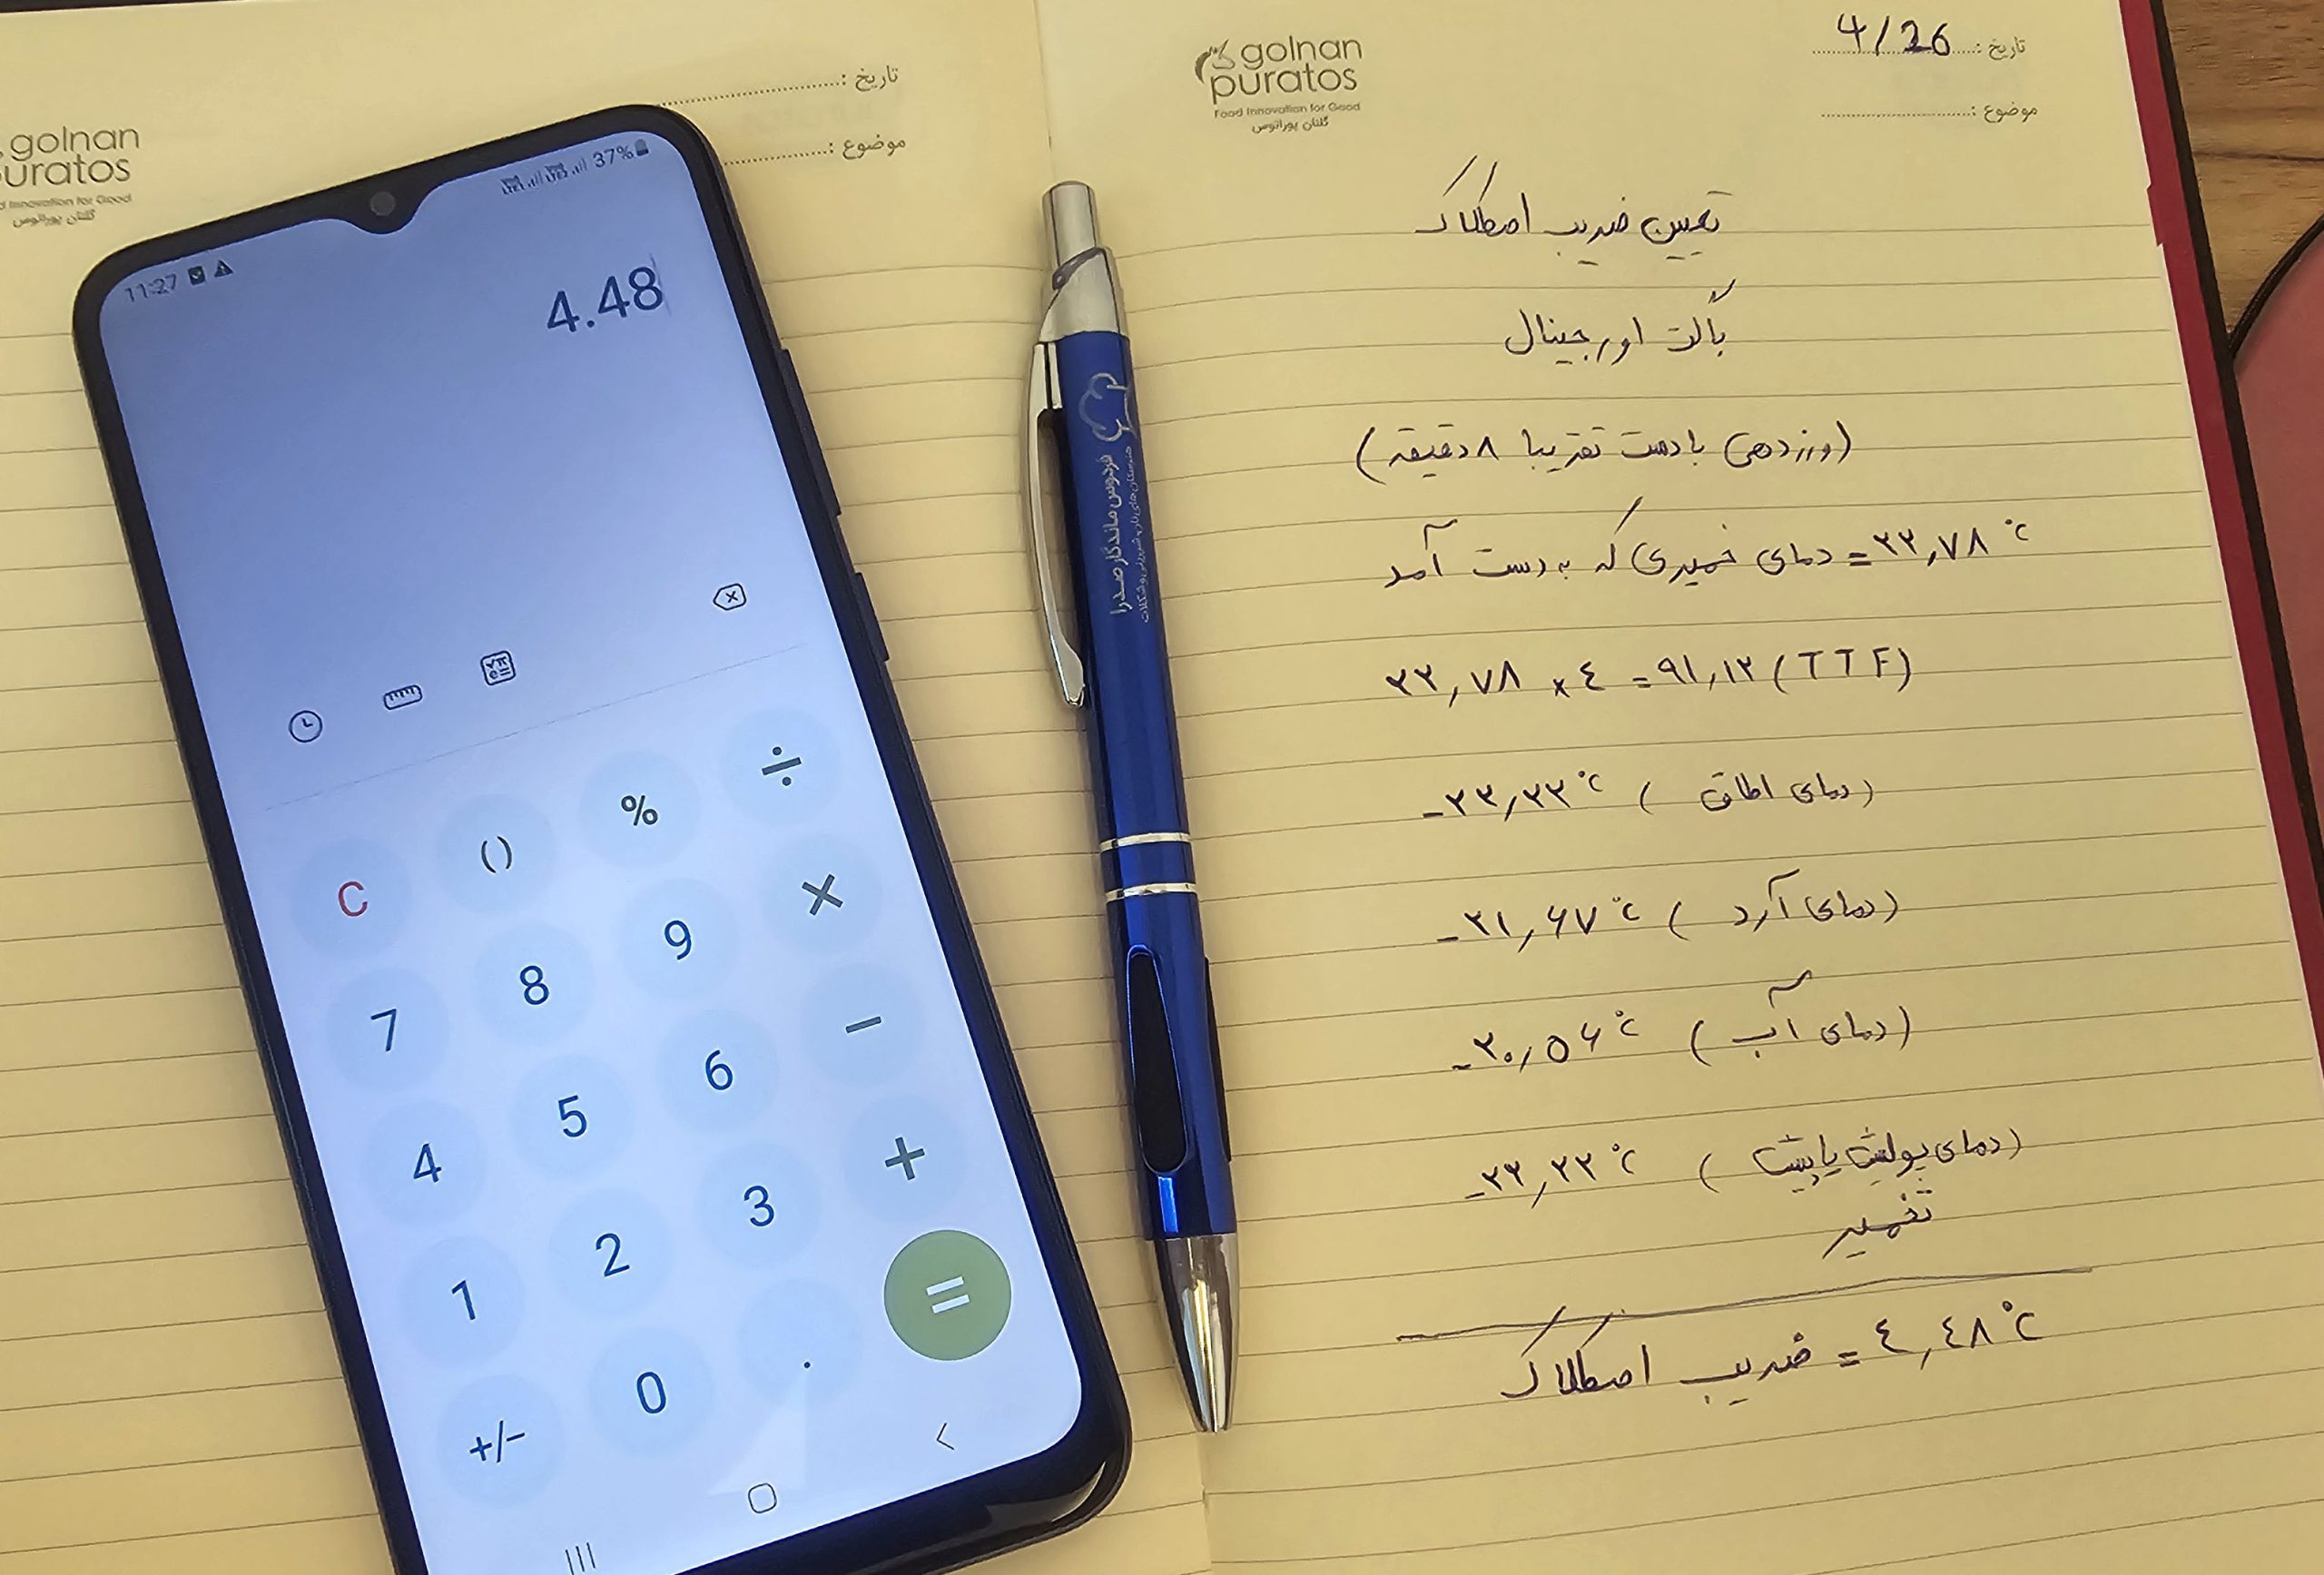 golnan
puratos
Food Innovation for Good
گلنان پوراتوس
تاریخ :
موضوع :
11:27
37%
4.48
C () % ÷
7 8 9 ×
4 5 6 −
1 2 3 +
+/− 0 . =
فردوس ماندگار صدرا
golnan
puratos
Food Innovation for Good
گلنان پوراتوس
تاریخ : 4/26
موضوع :
تعیین ضریب اصطکاک
باگت اورجینال
(ورزدهی با دست تقریبا ۸ دقیقه)
۲۲,۷۸ °C = دمای خمیری که به دست آمد
۲۲,۷۸ × ٤ = ۹۱,۱۲ (TTF)
-۲۲,۲۲ °C (دمای اطاق)
-۲۱,۶۷ °C (دمای آرد)
-۲۰,۵۶ °C (دمای آب)
-۲۲,۲۲ °C (دمای پولیش یا پیش
تخمیر
٤,٤۸ °C = ضریب اصطکاک